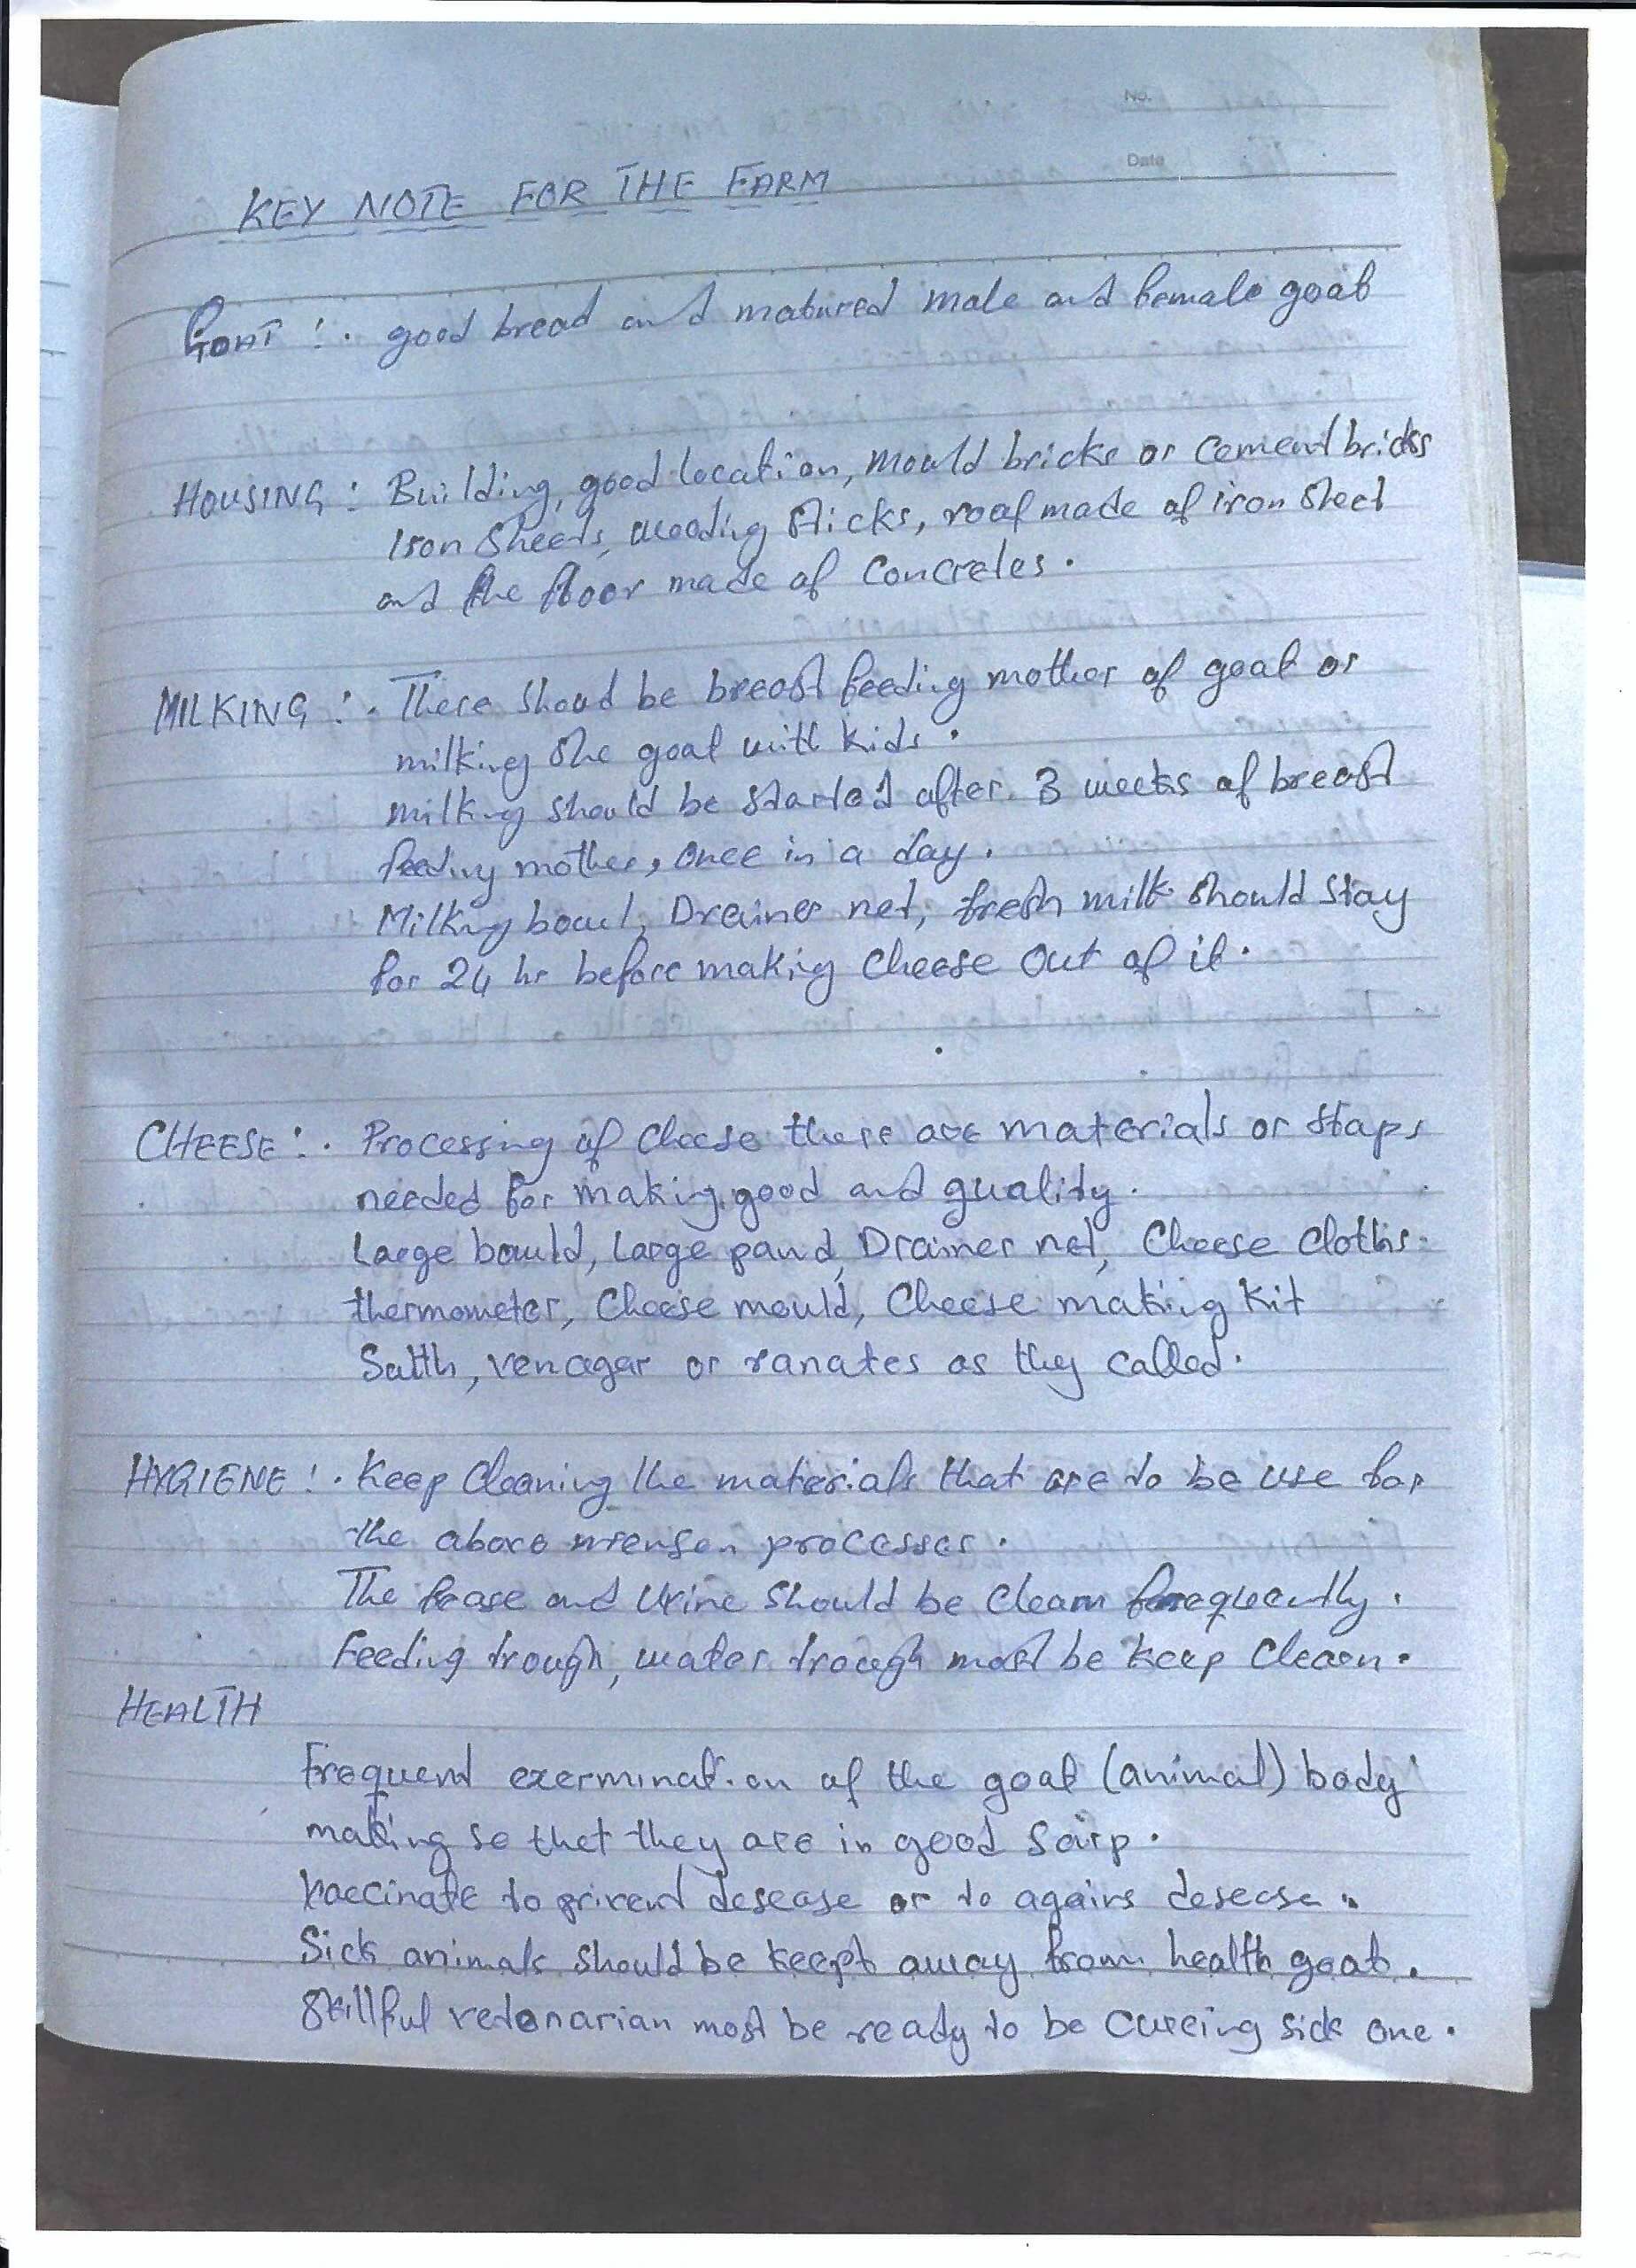 No.
Date
KEY NOTE FOR THE FARM
GOAT : . good bread and matured male and female goat
HOUSING : Building, good location, mould bricks or cement bricks
Iron Sheets, wooding sticks, roof made of iron sheet
and the floor made of concretes .
MILKING : . There shoud be breast feeding mother of goat or
milking she goat with kids .
milking should be started after 3 weeks of breast
feeding mother, once in a day .
Milking bowl, Drainer net, fresh milk should stay
for 24 hr before making cheese out of it .
CHEESE : . Processing of cheese there are materials or staps
needed for making good and quality .
Large bould, large pand, Drainer net, Cheese cloths .
thermometer, Cheese mould, Cheese making kit
Salth, venagar or ranates as they called .
HYGIENE : . Keep cleaning the materials that are to be use for
the above processes .
The fease and urine should be clean frequently .
Feeding trough, water trough most be keep clean .
HEALTH
Frequent exermination of the goat (animal) body
making so that they are in good sarp .
Vaccinate to privent desease or to agains desease .
Sick animals should be keept away from health goat .
Skillful vetanarian most be ready to be cureing sick one .